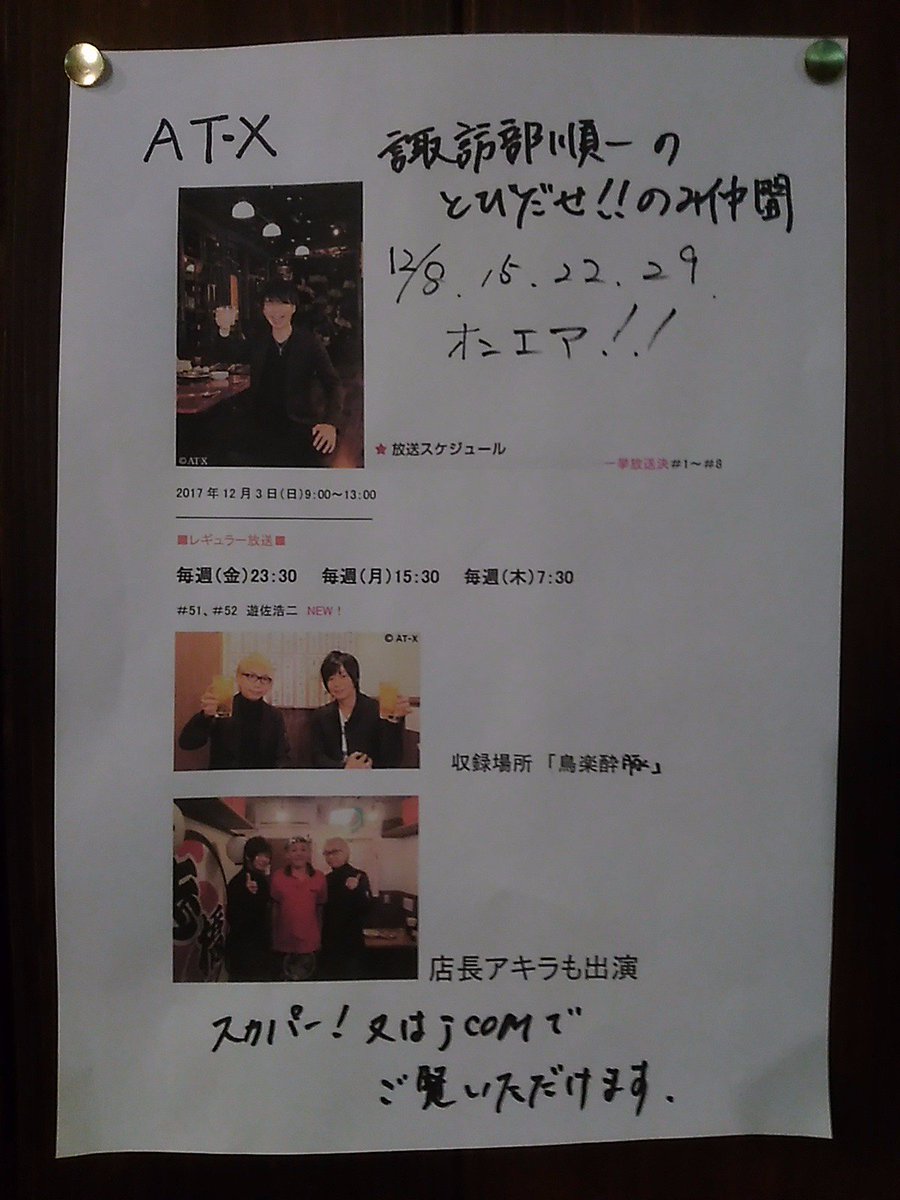 AT-X
諏訪部順一の
とびだせ!!のみ仲間
12/8.15.22.29.
オンエア!!
©AT-X
★放送スケジュール
一挙放送決#1～#8
2017年12月3日(日)9:00～13:00
■レギュラー放送■
毎週(金)23:30 毎週(月)15:30 毎週(木)7:30
#51、#52 遊佐浩二 NEW!
©AT-X
収録場所「鳥楽酔豚」
店長アキラも出演
スカパー!又はjCOMで
ご覧いただけます.